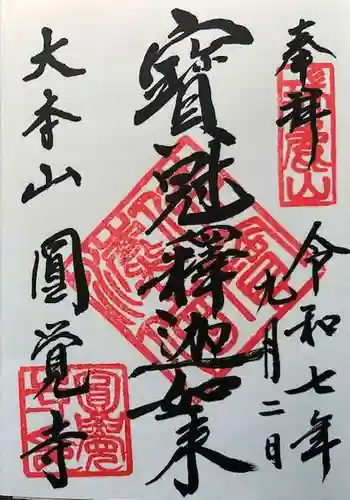 奉拝
令和七年
九月二日
寶冠釋迦如来
大本山 圓覚寺